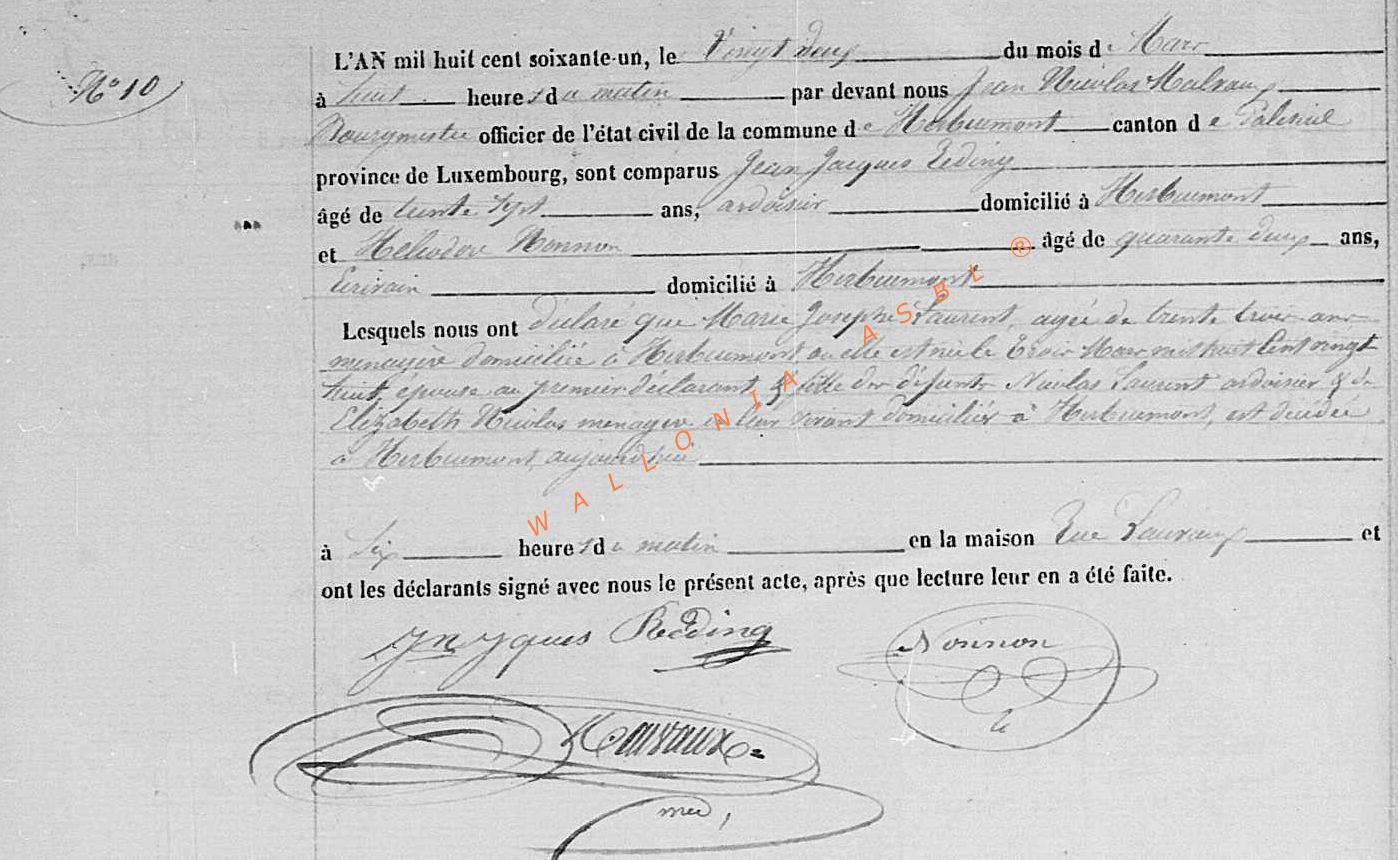 N° 10
L'AN mil huit cent soixante-un, le Vingt deux du mois de Mars
à huit heures du matin par devant nous Jean Nicolas
Bourgmestre officier de l'état civil de la commune de Herbeumont canton de Paliseul
province de Luxembourg, sont comparus Jean Jacques Reding
âgé de trente Sept ans, ardoisier domicilié à Herbeumont
et Héliodore Nonnon âgé de quarante deux ans,
Ecrivain domicilié à Herbeumont
Lesquels nous ont déclaré que Marie Josephe Laurent, agée de trente trois ans
menagere domiciliée à Herbeumont ou elle est née le trois Mars mil huit Cent vingt
huit, épouse au premier déclarant, & fille des défunts Nicolas Laurent ardoisier & de
Elizabeth Nicolas menagere en leur vivant domiciliés à Herbeumont, est décédée
à Herbeumont, aujourd'hui
à Six heures du matin en la maison Rue et
ont les déclarants signé avec nous le présent acte, après que lecture leur en a été faite.
Jn Jques Reding
Nonnon
WALLONIA ASBL ®